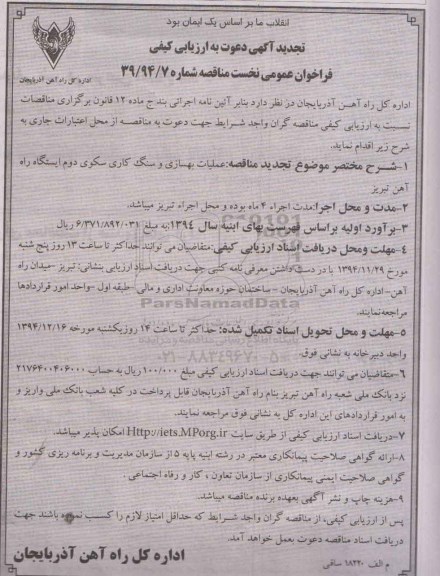 انقلاب ما بر اساس یک ایمان بود
تجدید آگهی دعوت به ارزیابی کیفی
فراخوان عمومی نخست مناقصه شماره ۳۹/۹۴/۷
اداره کل راه آهن آذربایجان
اداره کل راه آهن آذربایجان در نظر دارد بنابر آئین نامه اجرائی بند ج ماده ۱۲ قانون برگزاری مناقصات
نسبت به ارزیابی کیفی مناقصه گران واجد شرایط جهت دعوت به مناقصه از محل اعتبارات جاری به
شرح زیر اقدام نماید.
۱-شرح مختصر موضوع تجدید مناقصه:عملیات بهسازی و سنگ کاری سکوی دوم ایستگاه راه
آهن تبریز
۲-مدت و محل اجرا:مدت اجراء ۴ ماه بوده و محل اجراء تبریز میباشد.
۳-برآورد اولیه براساس فهرست بهای ابنیه سال ۱۳۹۴:به مبلغ ۶/۳۷۱/۸۹۲/۰۳۱ ریال
۴-مهلت ومحل دریافت اسناد ارزیابی کیفی:متقاضیان می توانند حداکثر تا ساعت ۱۳ روز پنج شنبه
مورخ ۱۳۹۴/۱۱/۲۹ با در دست داشتن معرفی نامه کتبی جهت دریافت اسناد ارزیابی بنشانی: تبریز -میدان راه
آهن-اداره کل راه آهن آذربایجان - ساختمان حوزه معاونت اداری و مالی -طبقه اول -واحد امور قراردادها
مراجعه نمایند.
ParsNamadData
۵-مهلت و محل تحویل اسناد تکمیل شده: حداکثر تا ساعت ۱۴ روز یکشنبه مورخه ۱۳۹۴/۱۲/۱۶
واحد دبیرخانه به نشانی فوق.
۰۲۱-۸۸۳۴۹۶۷۰-۵
۶-متقاضیان می توانند جهت دریافت اسناد ارزیابی کیفی مبلغ ۱۰۰/۰۰۰ ریال به حساب ۲۱۷۶۴۰۰۴۰۶۰۰۰
نزد بانک ملی شعبه راه آهن تبریز بنام راه آهن آذربایجان قابل پرداخت در کلیه شعب بانک ملی واریز و
به امور قراردادهای این اداره کل به نشانی فوق مراجعه نمایند.
۷-دریافت اسناد ارزیابی کیفی از طریق سایت Http://iets.MPorg.ir امکان پذیر میباشد.
۸-ارائه گواهی صلاحیت پیمانکاری معتبر در رشته ابنیه پایه ۵ از سازمان مدیریت و برنامه ریزی کشور و
گواهی صلاحیت ایمنی پیمانکاری از سازمان تعاون ، کار و رفاه اجتماعی
۹-هزینه چاپ و نشر آگهی بعهده برنده مناقصه میباشد.
پس از ارزیابی کیفی، از مناقصه گران واجد شرایط که حداقل امتیاز لازم را کسب نموده باشند جهت
دریافت اسناد مناقصه دعوت بعمل خواهد آمد.
اداره کل راه آهن آذربایجان
م الف ۱۸۲۲۰ ساقی